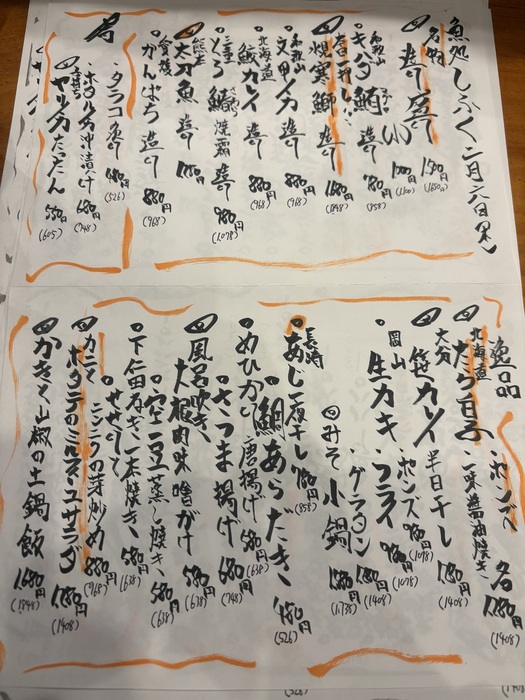 魚処しふく 二月二八日(木)
名物
造り盛り 1,500円
(1650)
(小) 1,000円
(1100)
和歌山
キハダ鮪 780円
(858)
寒鰤 造り 1,680円
(1848)
和歌山
文甲イカ 造り 880円
(968)
北海道
鮫カレイ 造り 880円
(968)
三重
とろ鰆 焼霜造り 980円
(1078)
熊本
太刀魚 造り
かんぱち 造り 880円
(968)
肴
タラコ炙り 480円
(528)
ホタルイカ沖漬け 680円
(748)
ヤリイカたったん 550円
(605)
逸品
北海道
たら白子 ポンズ
一味醤油焼き 各1,280円
(1408)
大分
笹カレイ 半日干し 1,280円
(1408)
岡山
生カキ ポンズ 980円
(1078)
フライ 980円
(1078)
グラタン 1,280円
(1408)
みそ小鍋 1,580円
(1738)
長崎
あじ一夜干し 780円
(858)
鯛あらだき 480円
(528)
めひかり唐揚げ 580円
(638)
さつま揚げ 680円
(748)
風呂吹き大根肉味噌がけ 580円
(638)
空豆 蒸し焼き 580円
(638)
下仁田ねぎ一本焼き 580円
(638)
せせりとニンニクの芽炒め 880円
(968)
カニとポタテのミルフィーユサラダ 1,280円
(1408)
かきと山椒の土鍋飯 1,680円
(1848)